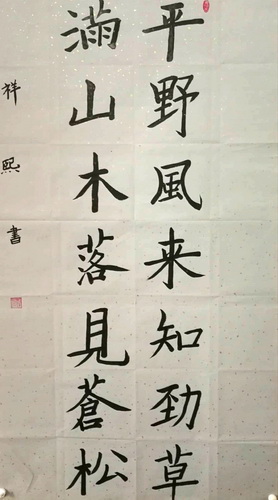 平野風来知勁草
滿山木落見蒼松
祥熙書